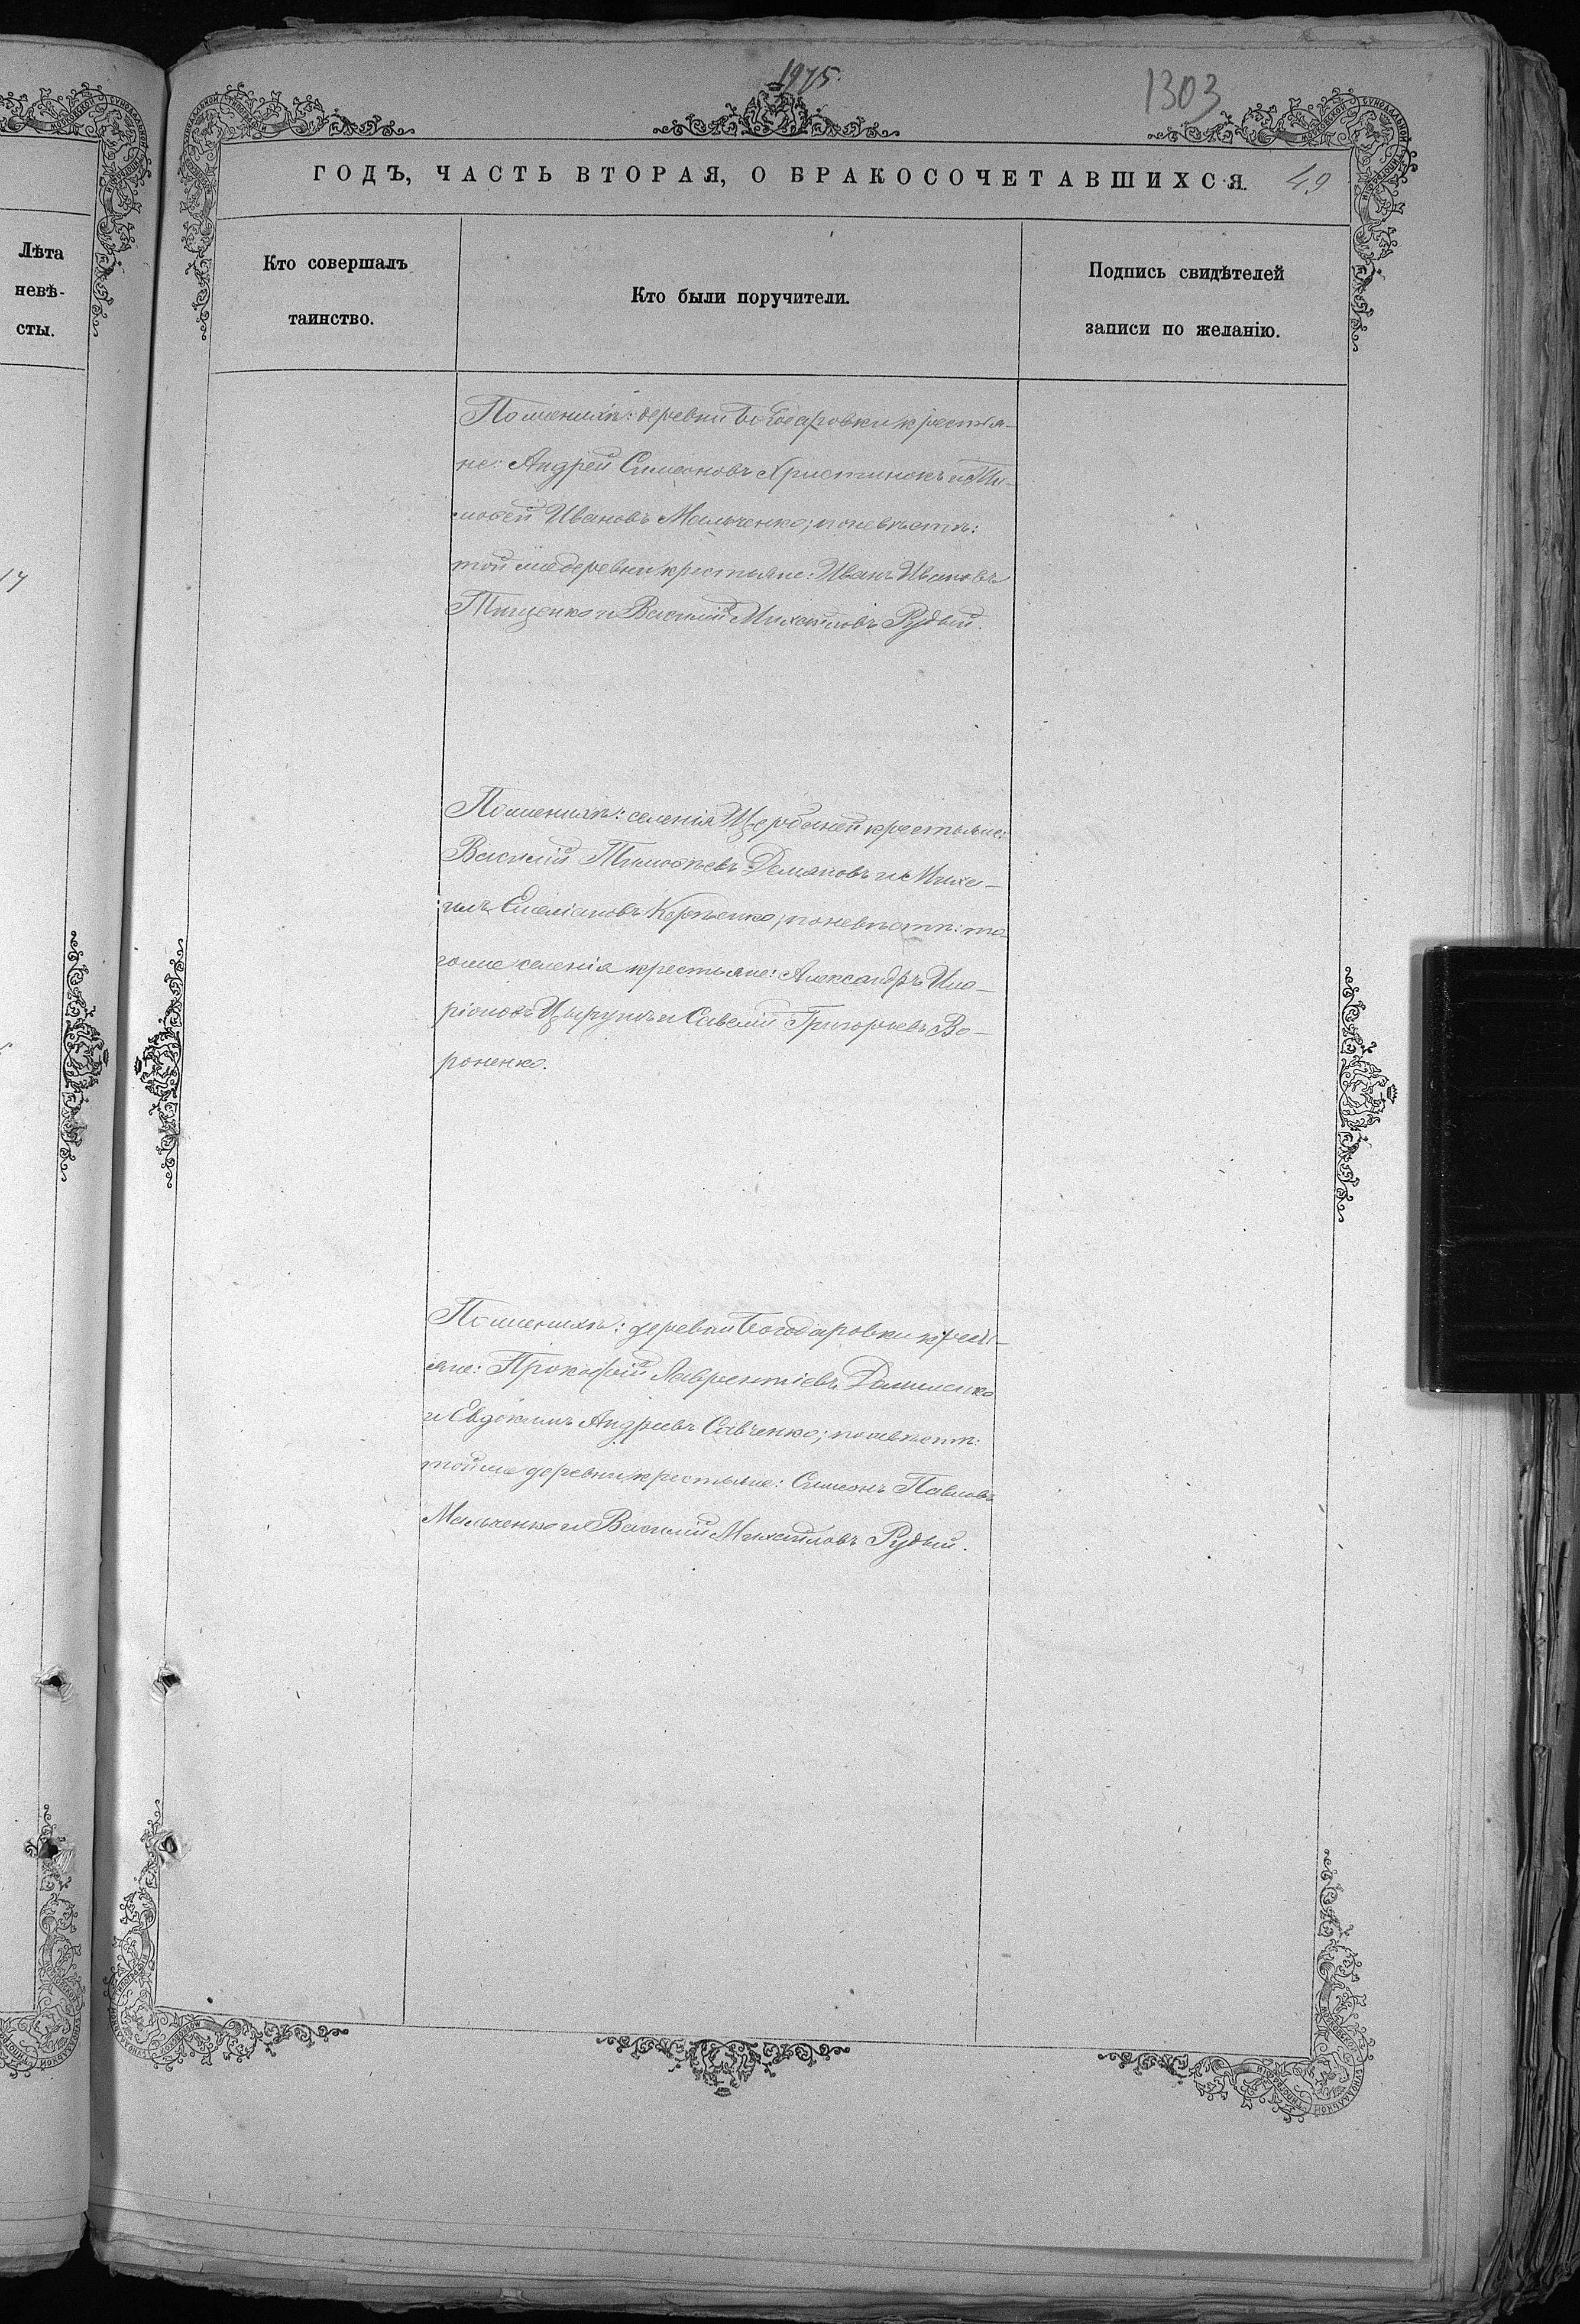 1975.
1303
ГОДЪ, ЧАСТЬ ВТОРАЯ, О БРАКОСОЧЕТАВШИХСЯ.
49
Лѣта
невѣ-
сты.
Кто совершалъ
таинство.
Кто были поручители.
Подпись свидѣтелей
записи по желанію.
По женихѣ: деревни Богодаровки крестья-
не: Андрей Симеоновъ Христинокъ и Ти-
моѳей Ивановъ Мальченко; по невѣстѣ:
той же деревни крестьяне: Иванъ Ивановъ
Тищенко и Василій Михайловъ Рудый.
17
По женихѣ: селенія Щербаней крестьяне:
Василій Тимоѳеевъ Демяновъ и Миха-
илъ Емеліановъ Корніенко; по невѣстѣ: то-
гоже селенія крестьяне: Александръ Ила-
ріоновъ Цырунъ и Савелій Григорьевъ Во-
роненко.
По женихѣ: деревни Богодаровки крест-
яне: Прокофій Лаврентіевъ Даниленко
и Евдокимъ Андреевъ Савченко; по невѣстѣ:
той же деревни крестьяне: Симеонъ Павловъ
Мальченко и Василій Михайловъ Рудый.